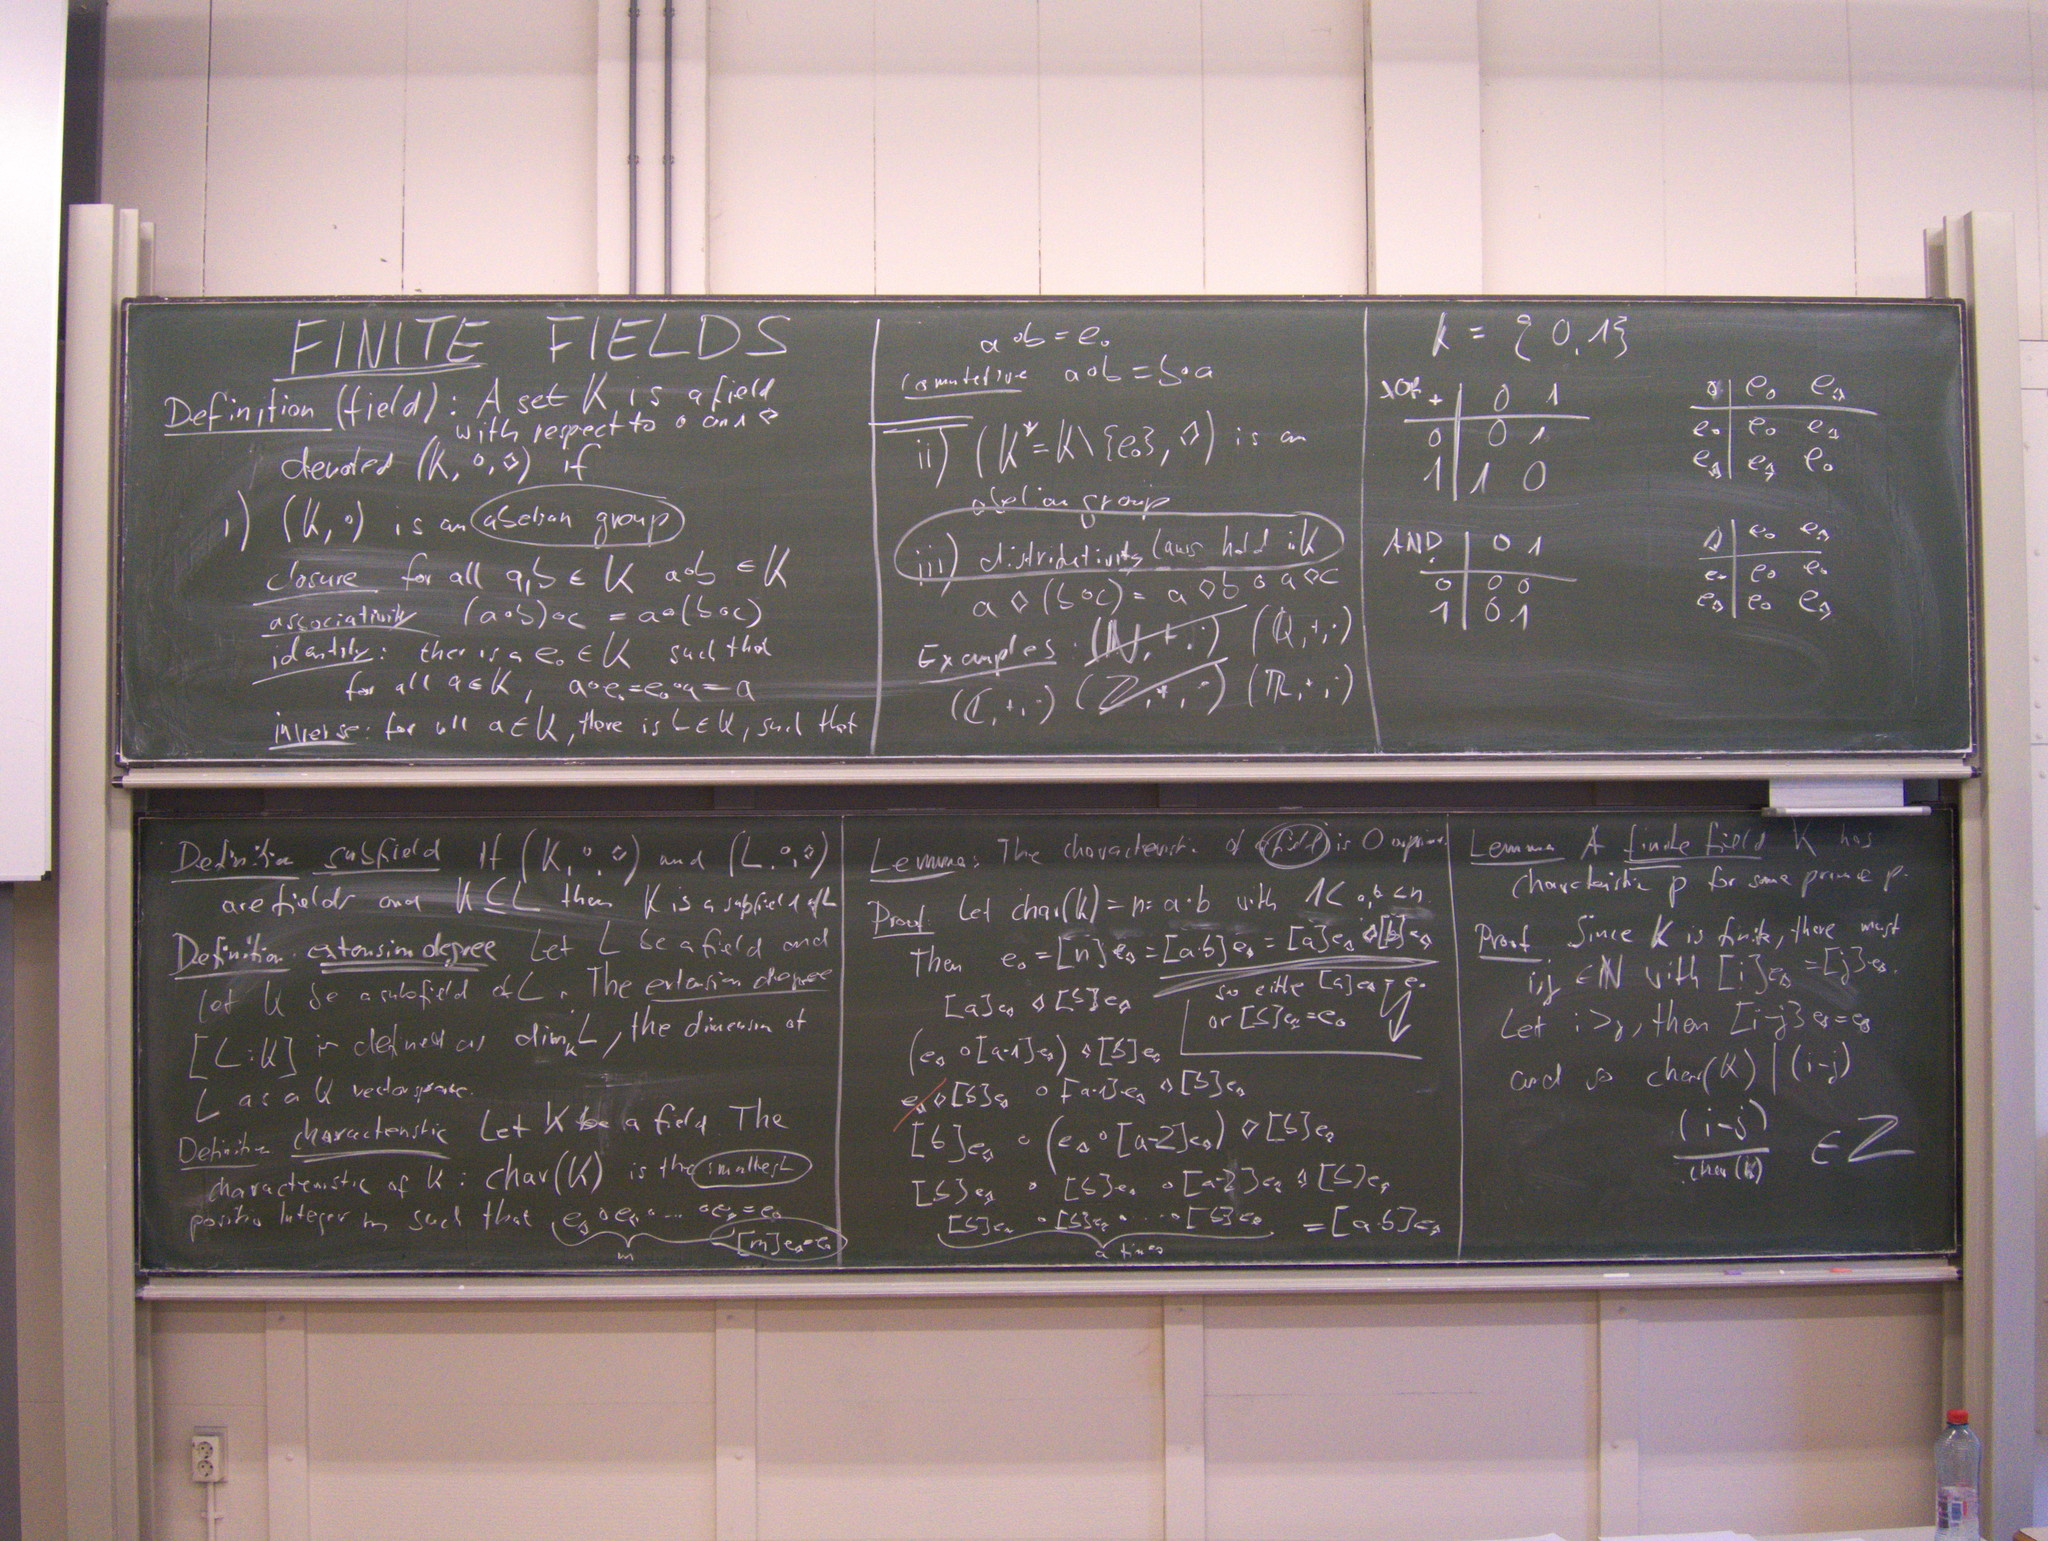 FINITE FIELDS
Definition (field): A set K is a field
with respect to ∘ and ◇
denoted (K, ∘, ◇) if
i) (K, ∘) is an abelian group
closure for all a,b ∈ K a∘b ∈ K
associativity (a∘b)∘c = a∘(b∘c)
identity: there is a e∘ ∈ K such that
for all a ∈ K, a∘e∘=e∘∘a=a
inverse: for all a ∈ K, there is b ∈ K, such that
a∘b = e∘
commutative a∘b = b∘a
ii) (K* = K\{e∘}, ◇) is an
abelian group
iii) distributivity laws hold in K
a ◇ (b∘c) = a◇b ∘ a◇c
Examples: (ℕ,+,·) (ℚ,+,·)
(ℂ,+,·) (ℤ,+,·) (ℝ,+,·)
K = {0,1}
XOR + | 0 1
0 | 0 1
1 | 1 0
∘ | e∘ e◇
e∘ | e∘ e◇
e◇ | e◇ e∘
AND · | 0 1
0 | 0 0
1 | 0 1
◇ | e∘ e◇
e∘ | e∘ e∘
e◇ | e∘ e◇
Definition subfield If (K,∘,◇) and (L,∘,◇)
are fields and K ⊆ L then K is a subfield of L
Definition: extension degree Let L be a field and
let K be a subfield of L. The extension degree
[L:K] is defined as dim_K L, the dimension of
L as a K vectorspace.
Definition characteristic Let K be a field. The
characteristic of K: char(K) is the smallest
positive integer m such that e◇∘e◇∘...∘e◇=e∘
m
[m]e◇=e∘
Lemma: The characteristic of a field is 0 or prime.
Proof. Let char(K)=n=a·b with 1< a,b <n.
Then e∘=[n]e◇=[a·b]e◇=[a]e◇◇[b]e◇
so either [a]e◇=e∘
or [b]e◇=e∘
[a]e◇ ◇ [b]e◇
(e◇ ∘ [a-1]e◇) ◇ [b]e◇
e◇◇[b]e◇ ∘ [a-1]e◇ ◇ [b]e◇
[b]e◇ ∘ (e◇∘[a-2]e◇) ◇ [b]e◇
[b]e◇ ∘ [b]e◇ ∘ [a-2]e◇ ◇ [b]e◇
[b]e◇ ∘ [b]e◇ ∘ ... ∘ [b]e◇ = [a·b]e◇
a times
Lemma A finite field K has
characteristic p for some prime p.
Proof Since K is finite, there must
i,j ∈ ℕ with [i]e◇=[j]e◇.
Let i>j, then [i-j]e◇=e∘
and so char(K) | (i-j)
(i-j)
char(K) ∈ ℤ